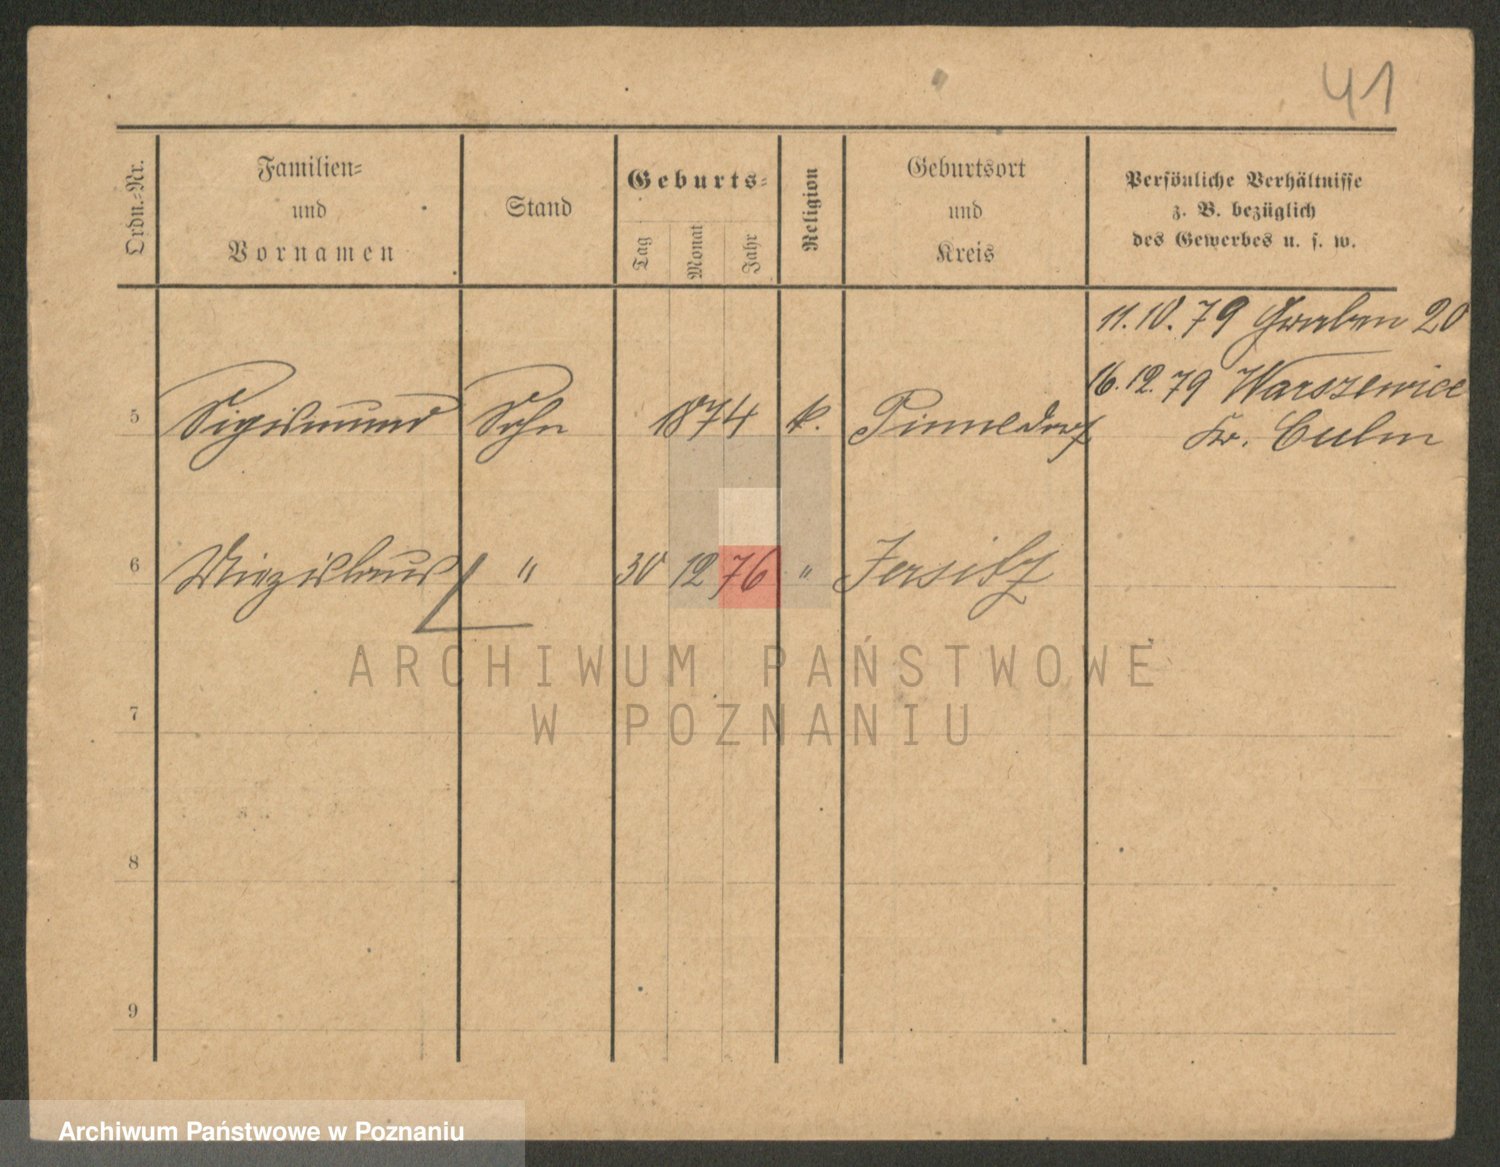 41
Ordn.-Nr.
Familien=
und
Vornamen
Stand
Geburts=
Tag
Monat
Jahr
Religion
Geburtsort
und
Kreis
Persönliche Verhältnisse
z. B. bezüglich
des Gewerbes u. s. w.
11.10.79 Graben 20
16.12.79 Warszewice
Kr. Culm
5 Sigismund Sohn 1874 k.
6 " 30 12 76 " Jersitz
ARCHIWUM PAŃSTWOWE
7
W POZNANIU
8
9
Archiwum Państwowe w Poznaniu